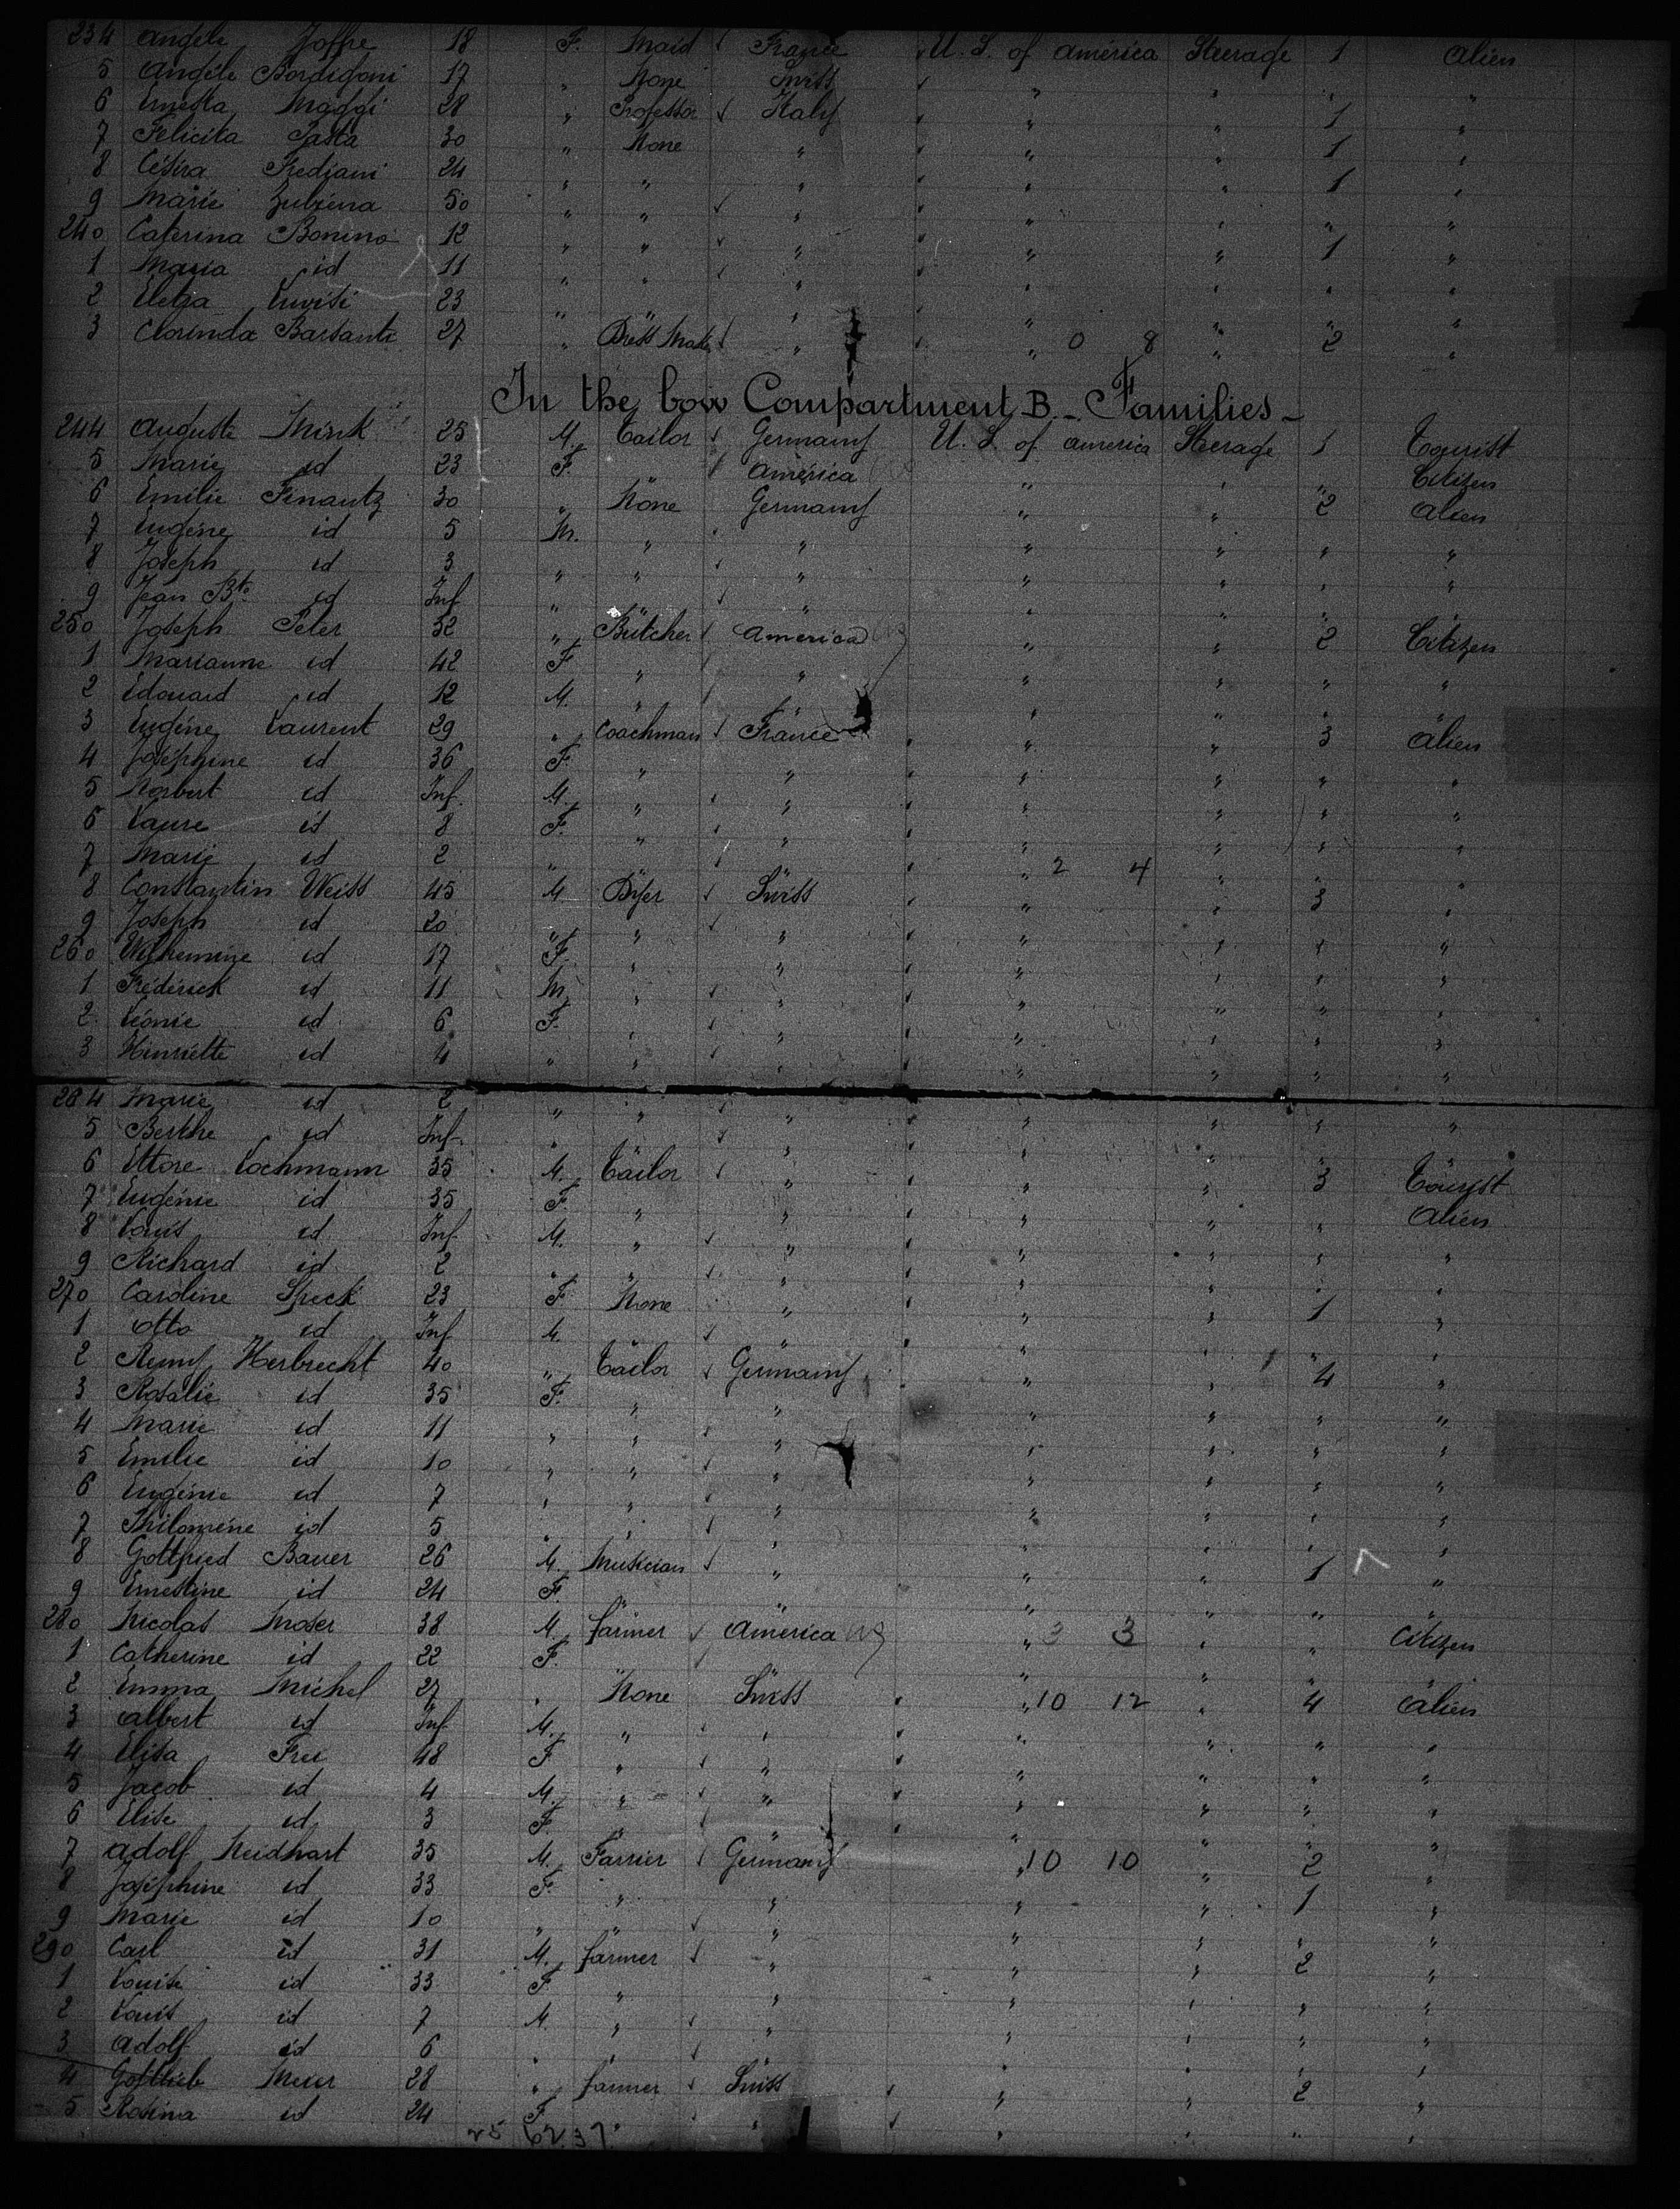 234 Angéle Joffre 18 F. Maid France U. S. of América Steerage 1 Alien
5 Angéle Bordigoni 17 " None Swiss " " " "
6 Ernesta Maggi 28 " Professor Italy " " 1 "
7 Felicita Pasta 30 " None " " " 1 "
8 Césira Frediani 24 " " " " " 1 "
9 Marie Zubiena 50 " " " " " " "
240 Caterina Bonino 12 " " " " " 1 "
1 Maria id 11 " " " " " " "
2 Eletra Luvisi 23 " " " " " " "
3 Clorinda Barsanti 27 " Dress Maker " " 0 8 " 2 "
In the bow Compartment B - Families -
244 Auguste Mink 25 M. Tailor Germany U. S. of America Steerage 1 Tourist
5 Marie id 23 F. " América " " " Citizen
6 Emilie Finantz 30 " None Germany " " 2 Alien
7 Eugéne id 5 M. " " " " " "
8 Joseph id 3 " " " " " " "
9 Jean Bte id Inf " " " " " " "
250 Joseph Peter 32 " Butcher America " " 2 Citizen
1 Marianne id 42 F " " " " " "
2 Edouard id 12 M. " " " " " "
3 Eugéne Laurent 29 " Coachman France " " 3 Alien
4 Joséphine id 36 F. " " " " " "
5 Norbert id Inf. M. " " " " " "
6 Laure id 8 F. " " " " " "
7 Marie id 2 " " " " 2 4 " " "
8 Constantin Weiss 45 M Dyer Swiss " " 3 "
9 Joseph id 20 " " " " " " "
260 Wilhemine id 17 F. " " " " " "
1 Fréderick id 11 M. " " " " " "
2 Léonie id 6 F. " " " " " "
3 Henriette id 4 " " " " " " "
264 Marie id 2 " " " " " " "
5 Berthe id Inf. " " " " " " "
6 Ettore Lochmann 35 M. Tailor " " " 3 Tourist
7 Eugénie id 35 F. " " " " " Alien
8 Louis id Inf. M. " " " " " "
9 Richard id 2 " " " " " " "
270 Caroline Speck 23 F None " " " 1 "
1 Otto id Inf M. " " " " " "
2 Remy Herbrecht 40 " Tailor Germany " " 4 "
3 Rosalie id 35 F. " " " " " "
4 Marie id 11 " " " " " " "
5 Emilie id 10 " " " " " " "
6 Eugénie id 7 " " " " " " "
7 Philoméne id 5 " " " " " " "
8 Gottfried Bauer 26 M. Musician " " " 1 "
9 Ernestine id 24 F. " " " " " "
280 Nicolas Moser 38 M. farmer América " 3 3 " " Citizen
1 Catherine id 22 F. " " " " " "
2 Emma Michel 27 " None Swiss " 10 12 " 4 Alien
3 Albert id Inf. M. " " " " " "
4 Elisa Frei 48 F " " " " " "
5 Jacob id 4 M. " " " " " "
6 Elise id 3 F. " " " " " "
7 Adolf Neidhart 35 M. Farrier Germany " 10 10 " 2 "
8 Joséphine id 33 F. " " " " 1 "
9 Marie id 10 " " " " " " "
290 Carl id 31 M. farmer " " " 2 "
1 Louise id 33 F. " " " " " "
2 Louis id 7 M. " " " " " "
3 Adolf id 6 " " " " " " "
4 Gottlieb Meier 28 " farmer Swiss " " 2 "
5 Rosina id 24 F " " " " " "
25 62 37